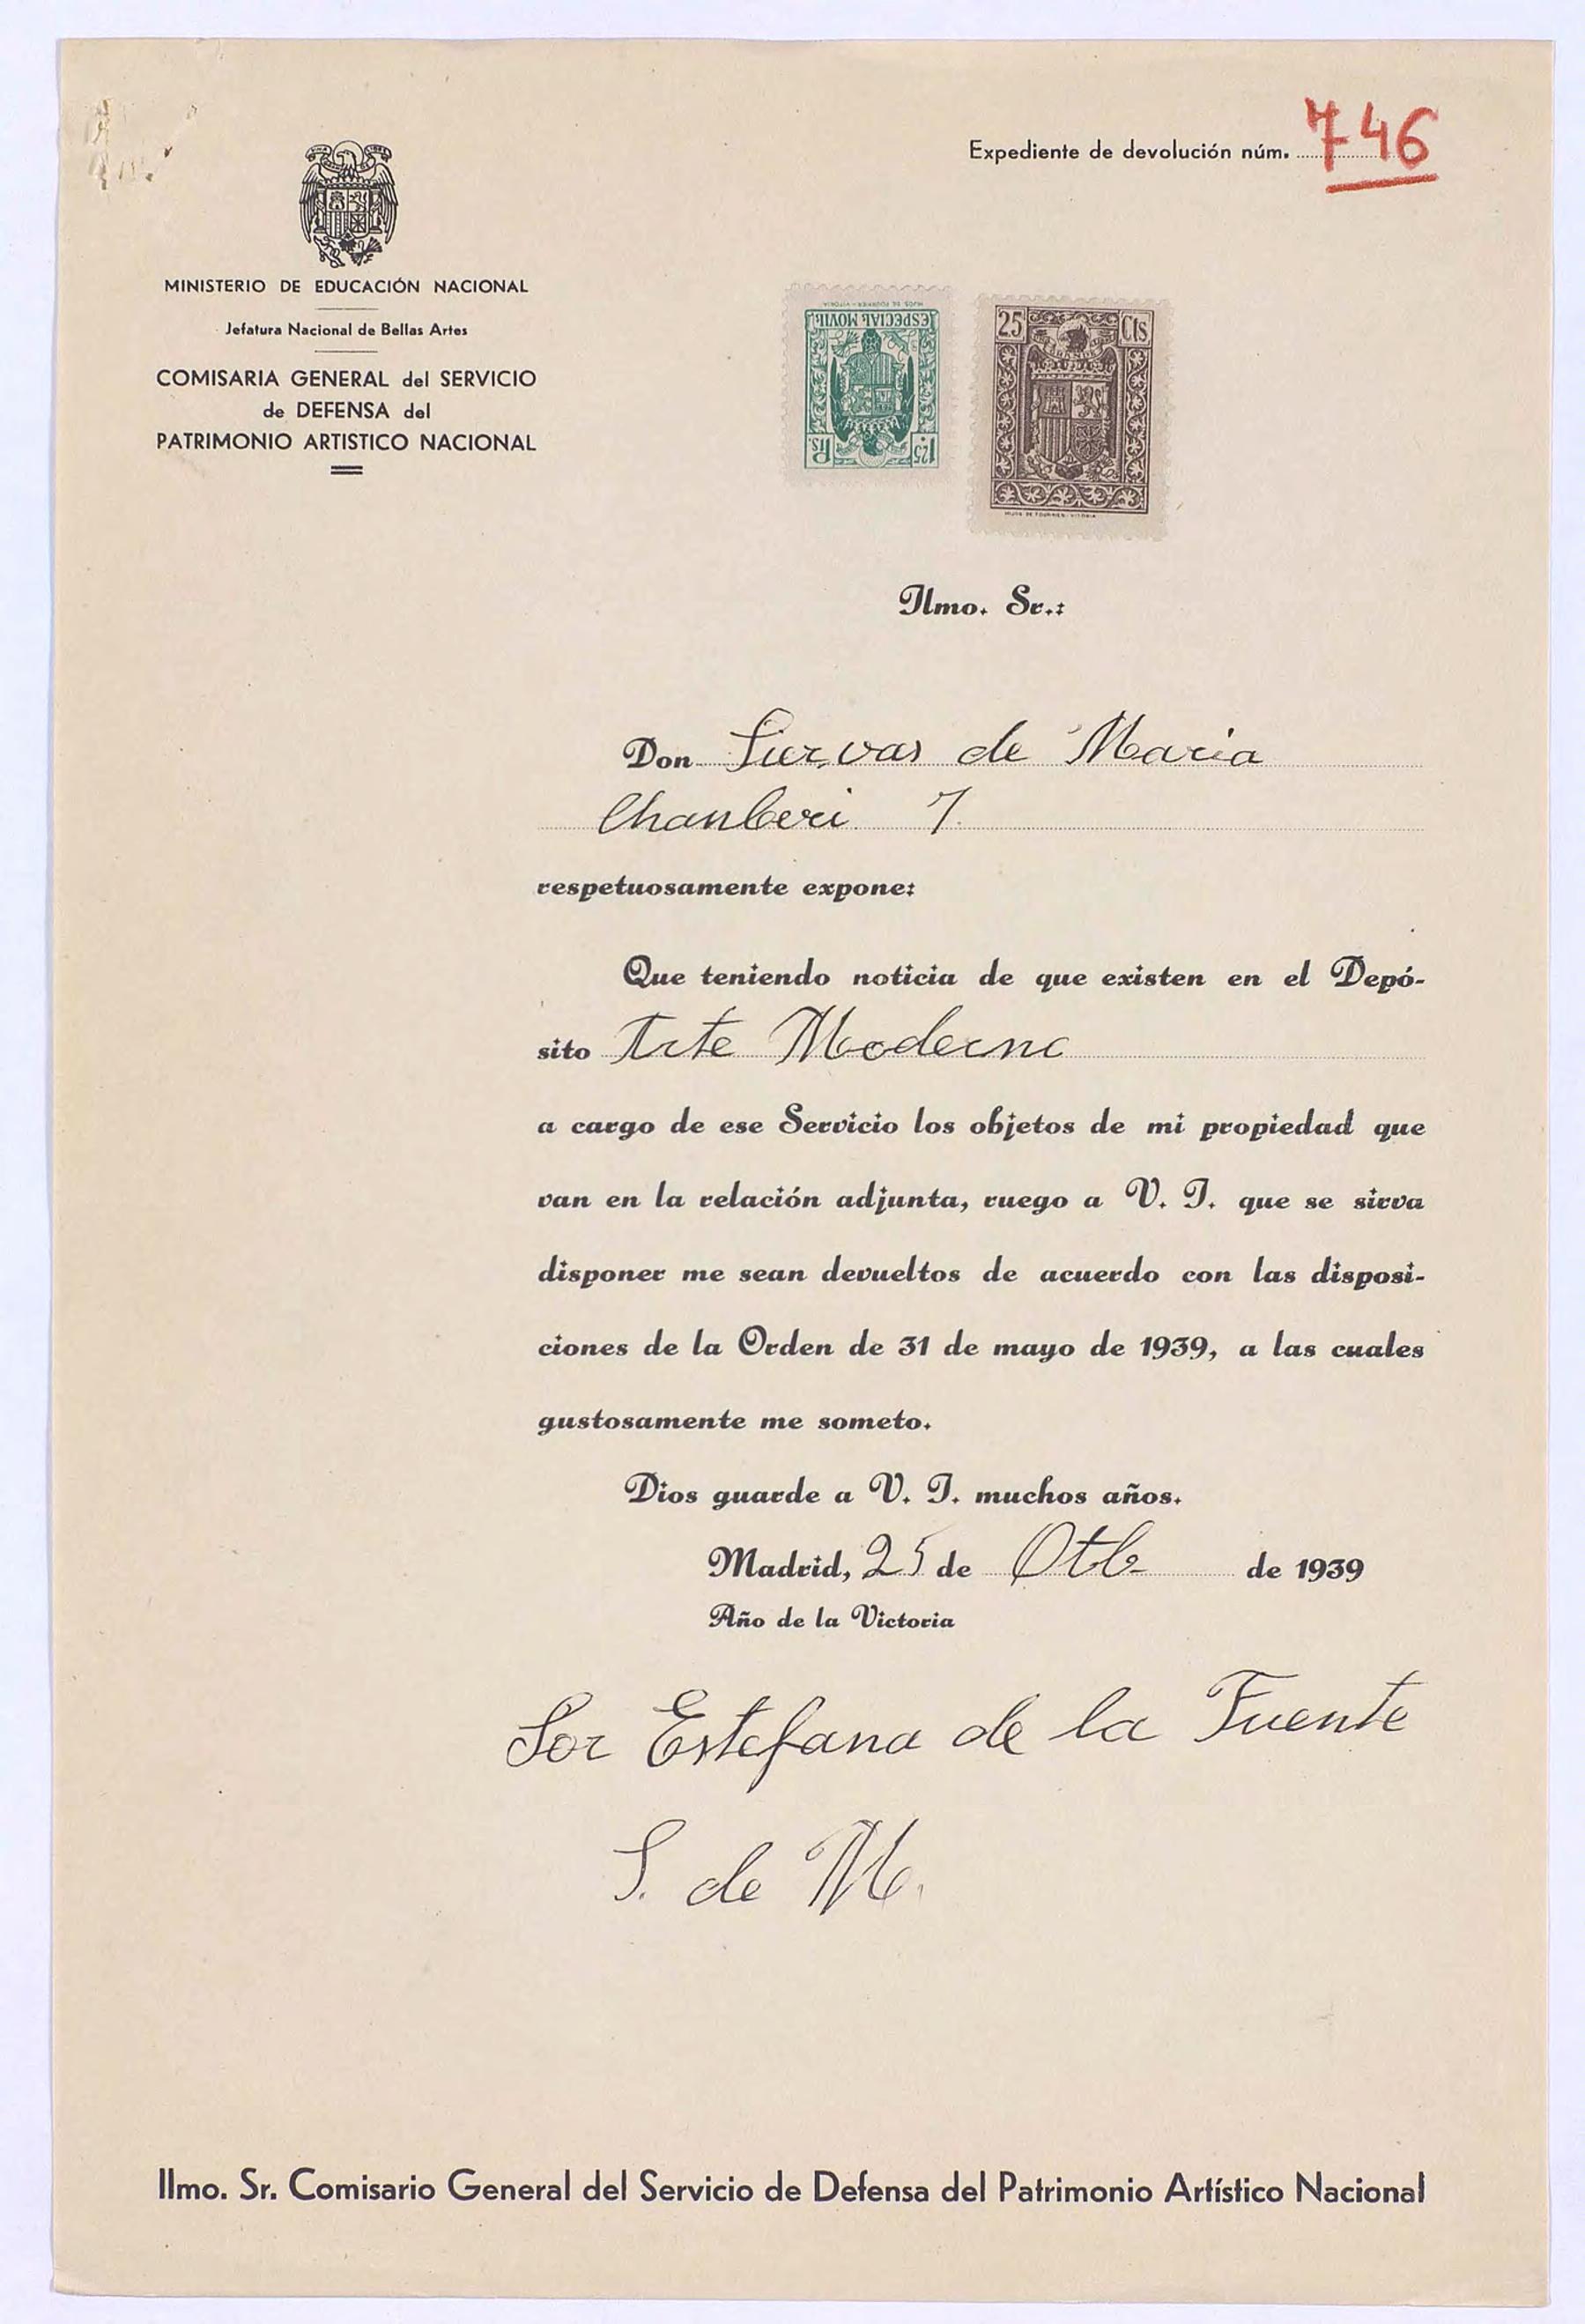 Expediente de devolución núm. 746
MINISTERIO DE EDUCACIÓN NACIONAL
Jefatura Nacional de Bellas Artes
COMISARIA GENERAL del SERVICIO
de DEFENSA del
PATRIMONIO ARTISTICO NACIONAL
HIJOS DE FOURNIER - VITORIA
ESPECIAL MOVIL
1'25 Pts.
25 Cts
HIJOS DE FOURNIER - VITORIA
Ilmo. Sr.:
Don Siervas de Maria
Chanberi 7.
respetuosamente expone:
Que teniendo noticia de que existen en el Depó-
sito Arte Moderno
a cargo de ese Servicio los objetos de mi propiedad que
van en la relación adjunta, ruego a V. I. que se sirva
disponer me sean devueltos de acuerdo con las disposi-
ciones de la Orden de 31 de mayo de 1939, a las cuales
gustosamente me someto.
Dios guarde a V. I. muchos años.
Madrid, 25 de Otb- de 1939
Año de la Victoria
Sor Estefana de la Fuente
S. de M.
Ilmo. Sr. Comisario General del Servicio de Defensa del Patrimonio Artístico Nacional